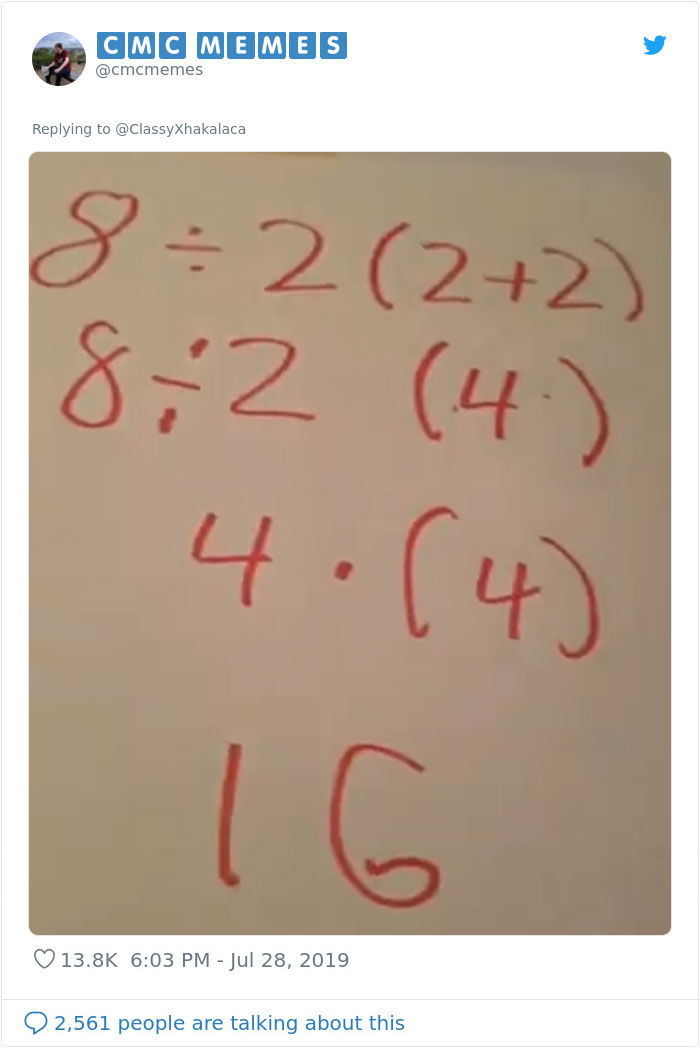 CMC MEMES
@cmcmemes
Replying to @ClassyXhakalaca
8 ÷ 2 (2+2)
8 ÷ 2 (4)
4 · (4)
16
13.8K 6:03 PM - Jul 28, 2019
2,561 people are talking about this